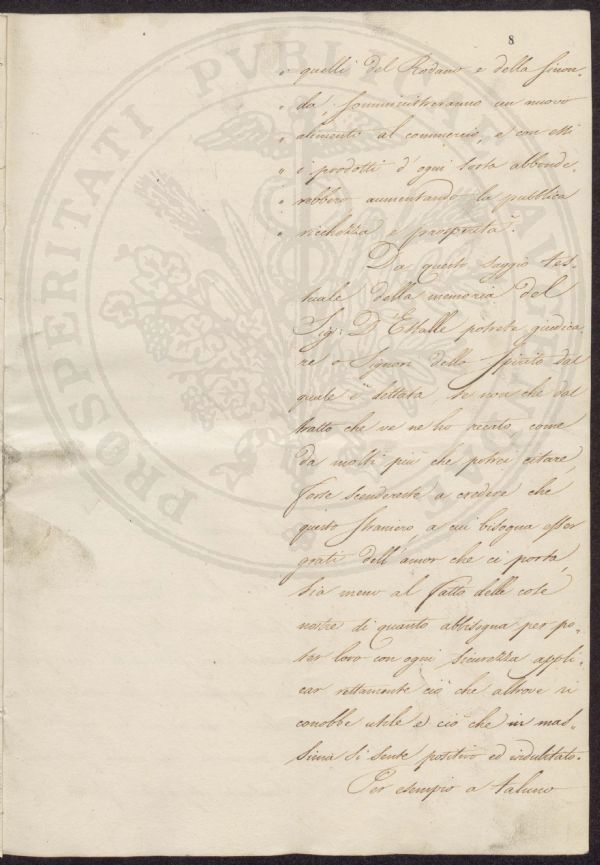 8
" quelli del Rodano e della Giron-
" da, somministreranno un nuovo
" alimento al commercio, e con essi
" i prodotti d'ogni sorta abbonde-
" rebbero aumentando la pubblica
" ricchezza e prosperità".
Da questo saggio tes-
tuale della memoria del
Sig: D'Estalle potrete giudica
re o Signori dello spirito dal
quale è dettata, se non che dal
tratto che ve ne ho recato, come
da molti più che potrei citare,
forse scenderete a credere che
questo straniero, a cui bisogna esser
grati dell'amor che ci porta,
sia meno al fatto delle cose
nostre di quanto abbisogna per po-
ter loro con ogni sicurezza appli-
car rettamente ciò che altrove ri
conobbe utile e ciò che in mas-
sima si sente positivo ed indubitato.
Per esempio a taluno
PROSPERITATI PVBLICAE AVGENDAE